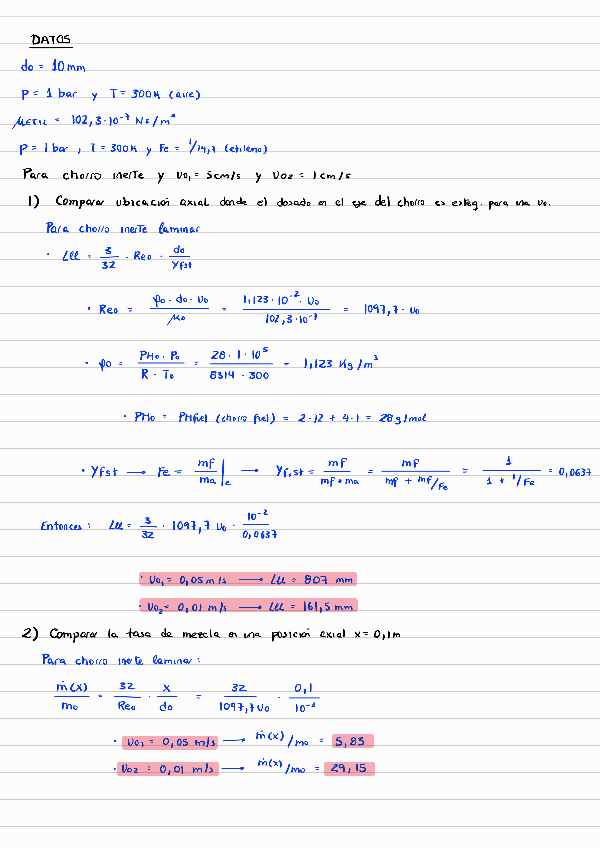 DATOS
do = 10 mm
P = 1 bar y T = 300K (aire)
μETIL = 102,3·10⁻⁷ Ns/m²
P = 1 bar , T = 300K y Fe = 1/14,7 (etileno)
Para chorro inerte y uo₁ = 5cm/s y uo2 = 1cm/s
1) Comparar ubicación axial donde el dosado en el eje del chorro es esteq. para una uo.
Para chorro inerte laminar
· Lll = 3/32 · Reo · do/Yfst
· Reo = φo · do · uo / μo = 1,123 · 10⁻² · uo / 102,3·10⁻⁷ = 1097,7 · uo
· φo = PMo · Po / R · To = 28 · 1 · 10⁵ / 8314 · 300 = 1,123 Kg/m³
· PMo = PMfuel (chorro fuel) = 2·12 + 4·1 = 28 g/mol
· Yfst → Fe = mf/ma |e → Yf,st = mf / mf + ma = mf / mf + mf/Fe = 1 / 1 + 1/Fe = 0,0637
Entonces : Lll = 3/32 · 1097,7 uo · 10⁻²/0,0637
· uo₁ = 0,05 m/s → Lll = 807 mm
· uo₂ = 0,01 m/s → Lll = 161,5 mm
2) Comparar la tasa de mezcla en una posición axial x = 0,1m
Para chorro inerte laminar :
ṁ(x)/mo = 32/Reo · x/do = 32/1097,7 uo · 0,1/10⁻²
· uo₁ = 0,05 m/s → ṁ(x)/mo = 5,83
· uo2 = 0,01 m/s → ṁ(x)/mo = 29,15